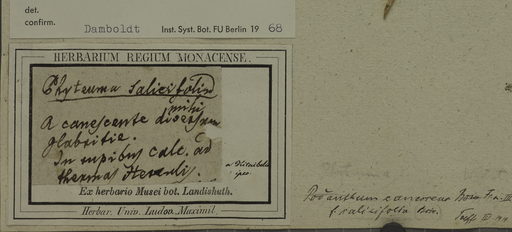 det.
confirm.
Damboldt Inst. Syst. Bot. FU Berlin 19 68
HERBARIUM REGIUM MONACENSE.
Phyteuma salicifolium
mihi
A canescente diversum
glabritie.
In rupibus calc. ad
thermas Herculis.
Ex herbario Musei bot. Landishuth.
Herbar. Univ. Ludov. Maximil.
Podanthum canescens
f. salicifolia